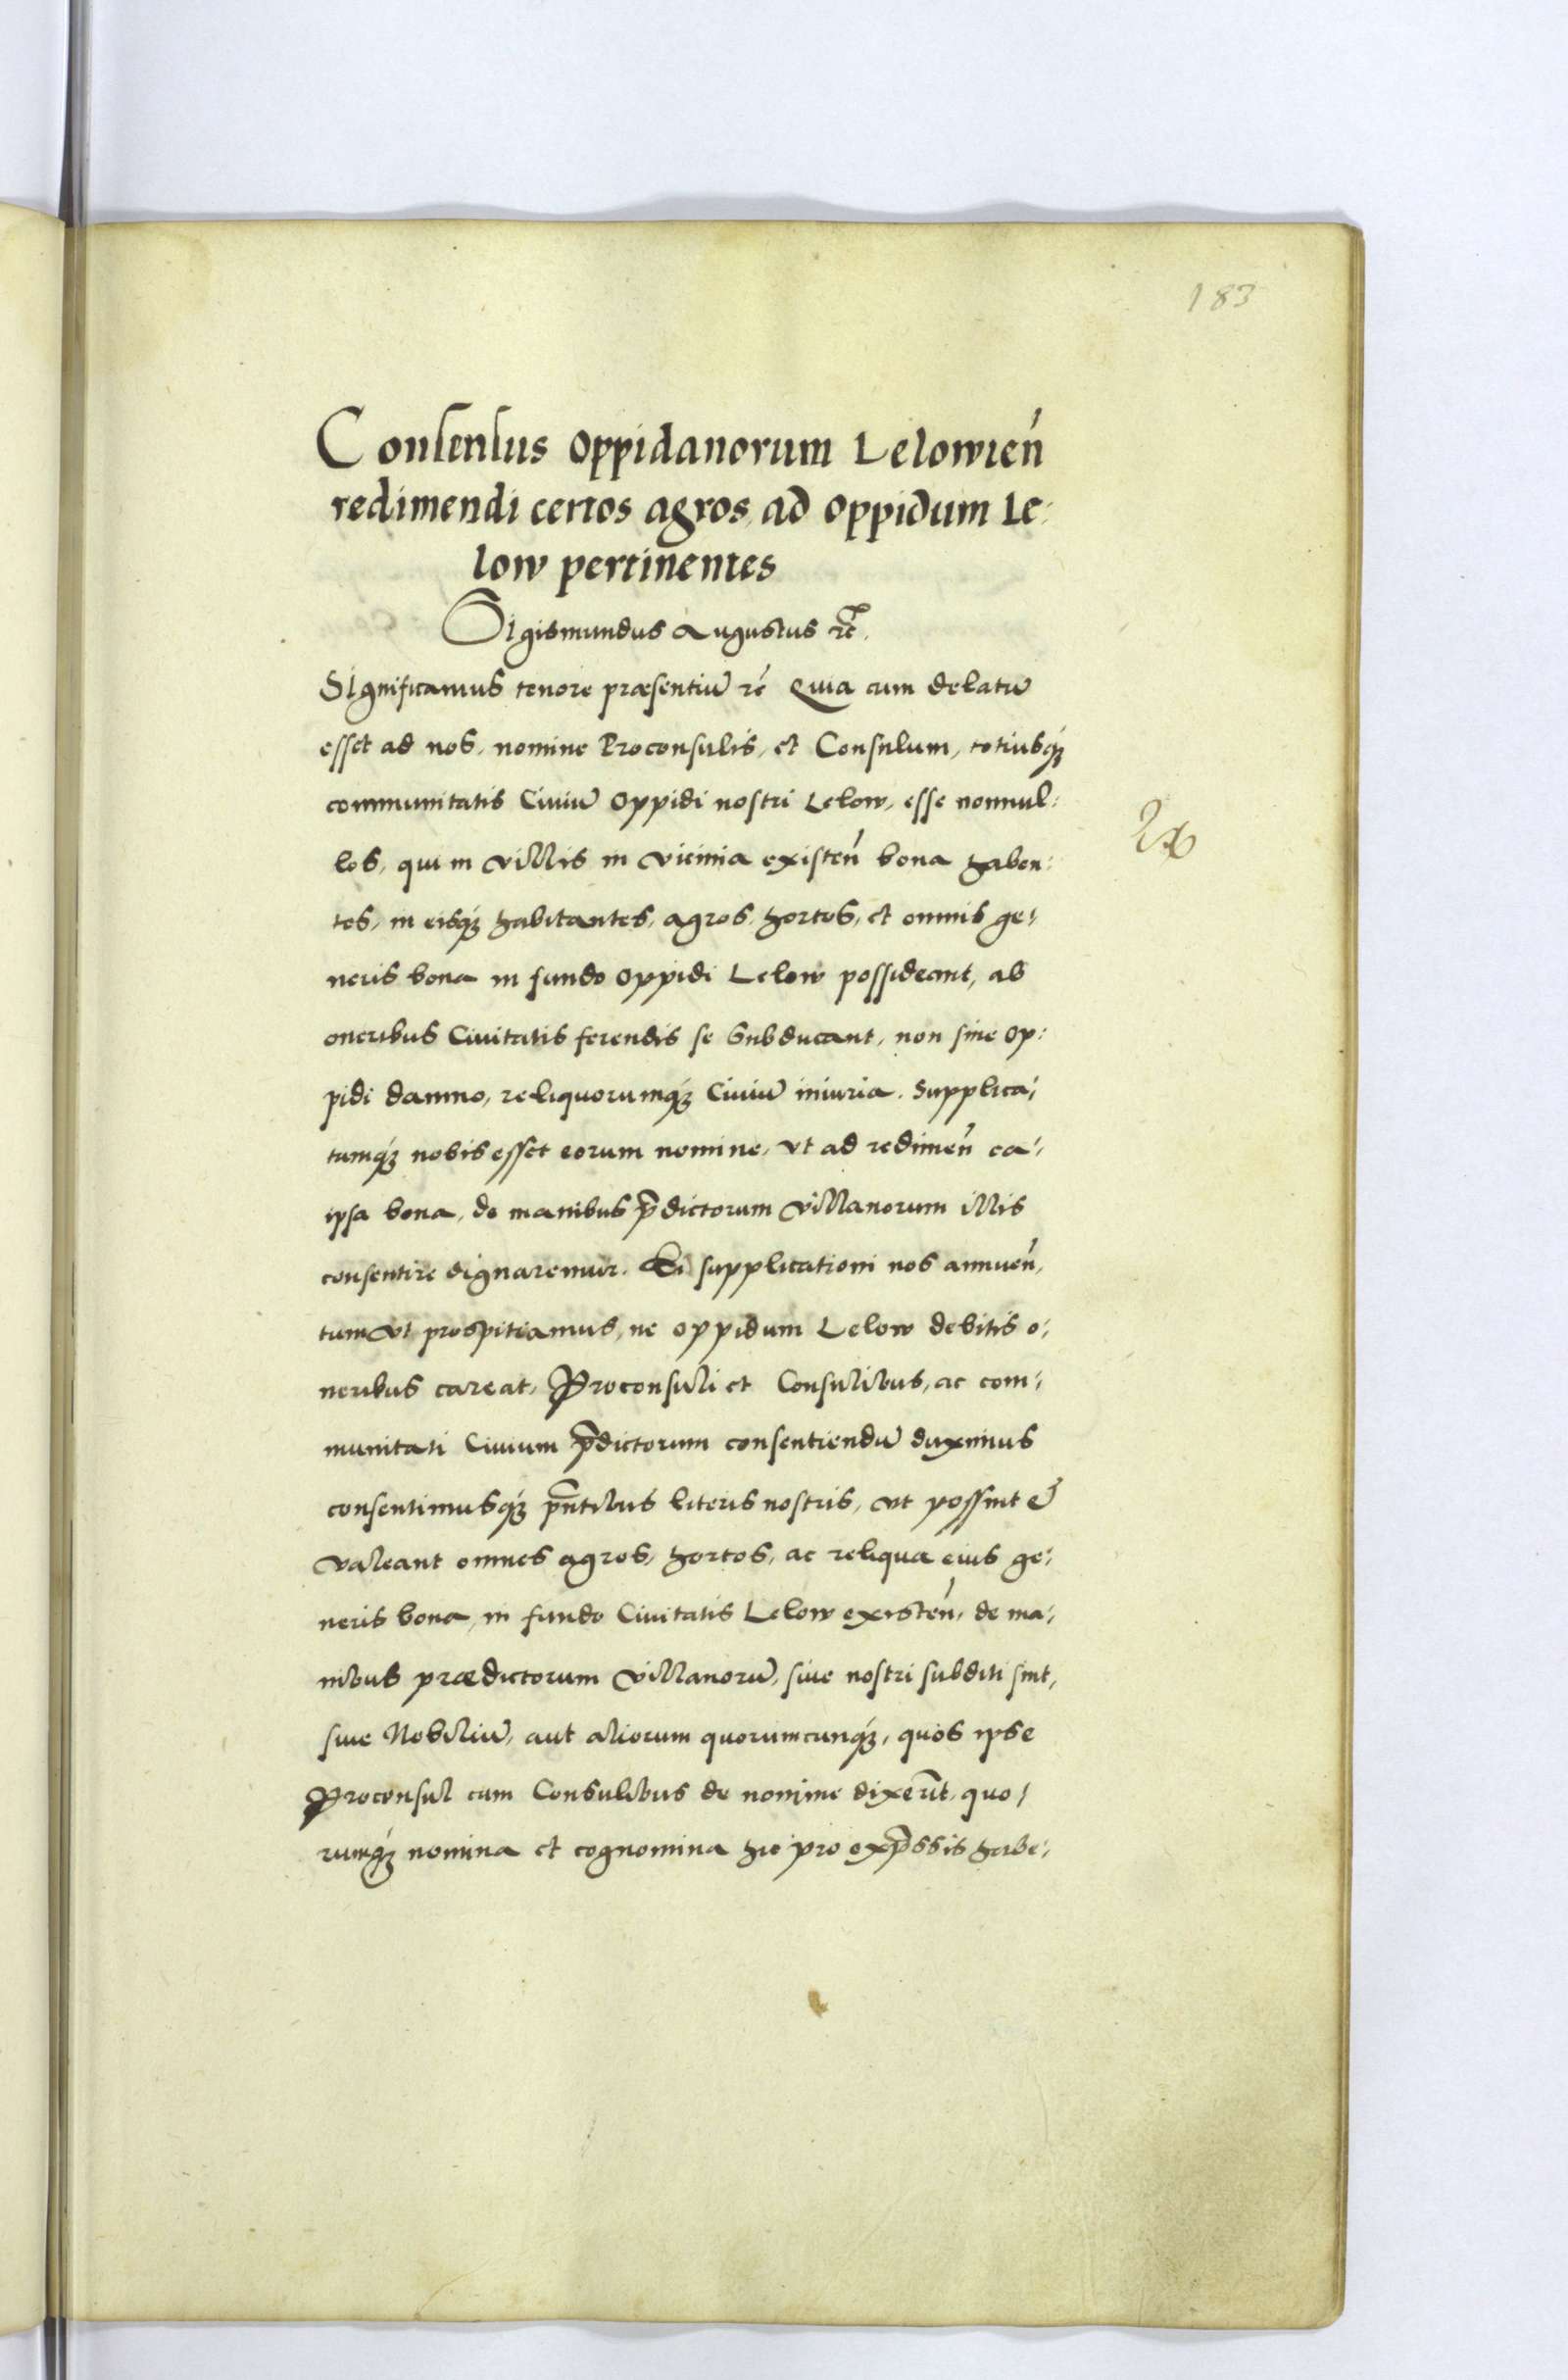 183
Consensus oppidanorum Lelowień
redimendi certos agros ad oppidum Le:
low pertinentes
Sigismundus Augustus rc̃.
Significamus tenore præsentiũ rc̃ Quia cum delatũ
esset ad nos, nomine Proconsulis, et Consulum, totiusq́ꝫ
communitatis Ciuiũ oppidi nostri Lelow, esse nonnul:
los, qui in villis in vicinia existeń bona haben:
tes, in eisq́ꝫ habitantes, agros, hortos, et omnis ge:
neris bona in fundo oppidi Lelow possideant, ab
oneribus Ciuitatis ferendis se subducant, non sine op:
pidi damno, reliquorumq́ꝫ Ciuiũ iniuria. Supplica:
tumq́ꝫ nobis esset eorum nomine, vt ad redimeń ea:
ipsa bona, de manibus p̃dictorum villanorum illis
consentire dignaremur. Ei supplicationi nos annueń,
tum vt prospitiamus, ne oppidum Lelow debitis o:
neribus careat, Proconsuli et Consulibus, ac com:
munitati Ciuium p̃dictorum consentiendũ duximus
consentimusq́ꝫ pñtibus literis nostris, vt possint &
valeant omnes agros, hortos, ac reliqua eius ge:
neris bona, in fundo Ciuitatis Lelow existeń, de ma:
nibus prædictorum villanorũ, siue nostri subditi sint,
siue Nobiliũ, aut aliorum quorumcunq́ꝫ, quos ipse
Proconsul cum Consulibus de nomine dixerĩt, quo:
rumq́ꝫ nomina et cognomina hic pro exp̃ssis habe: